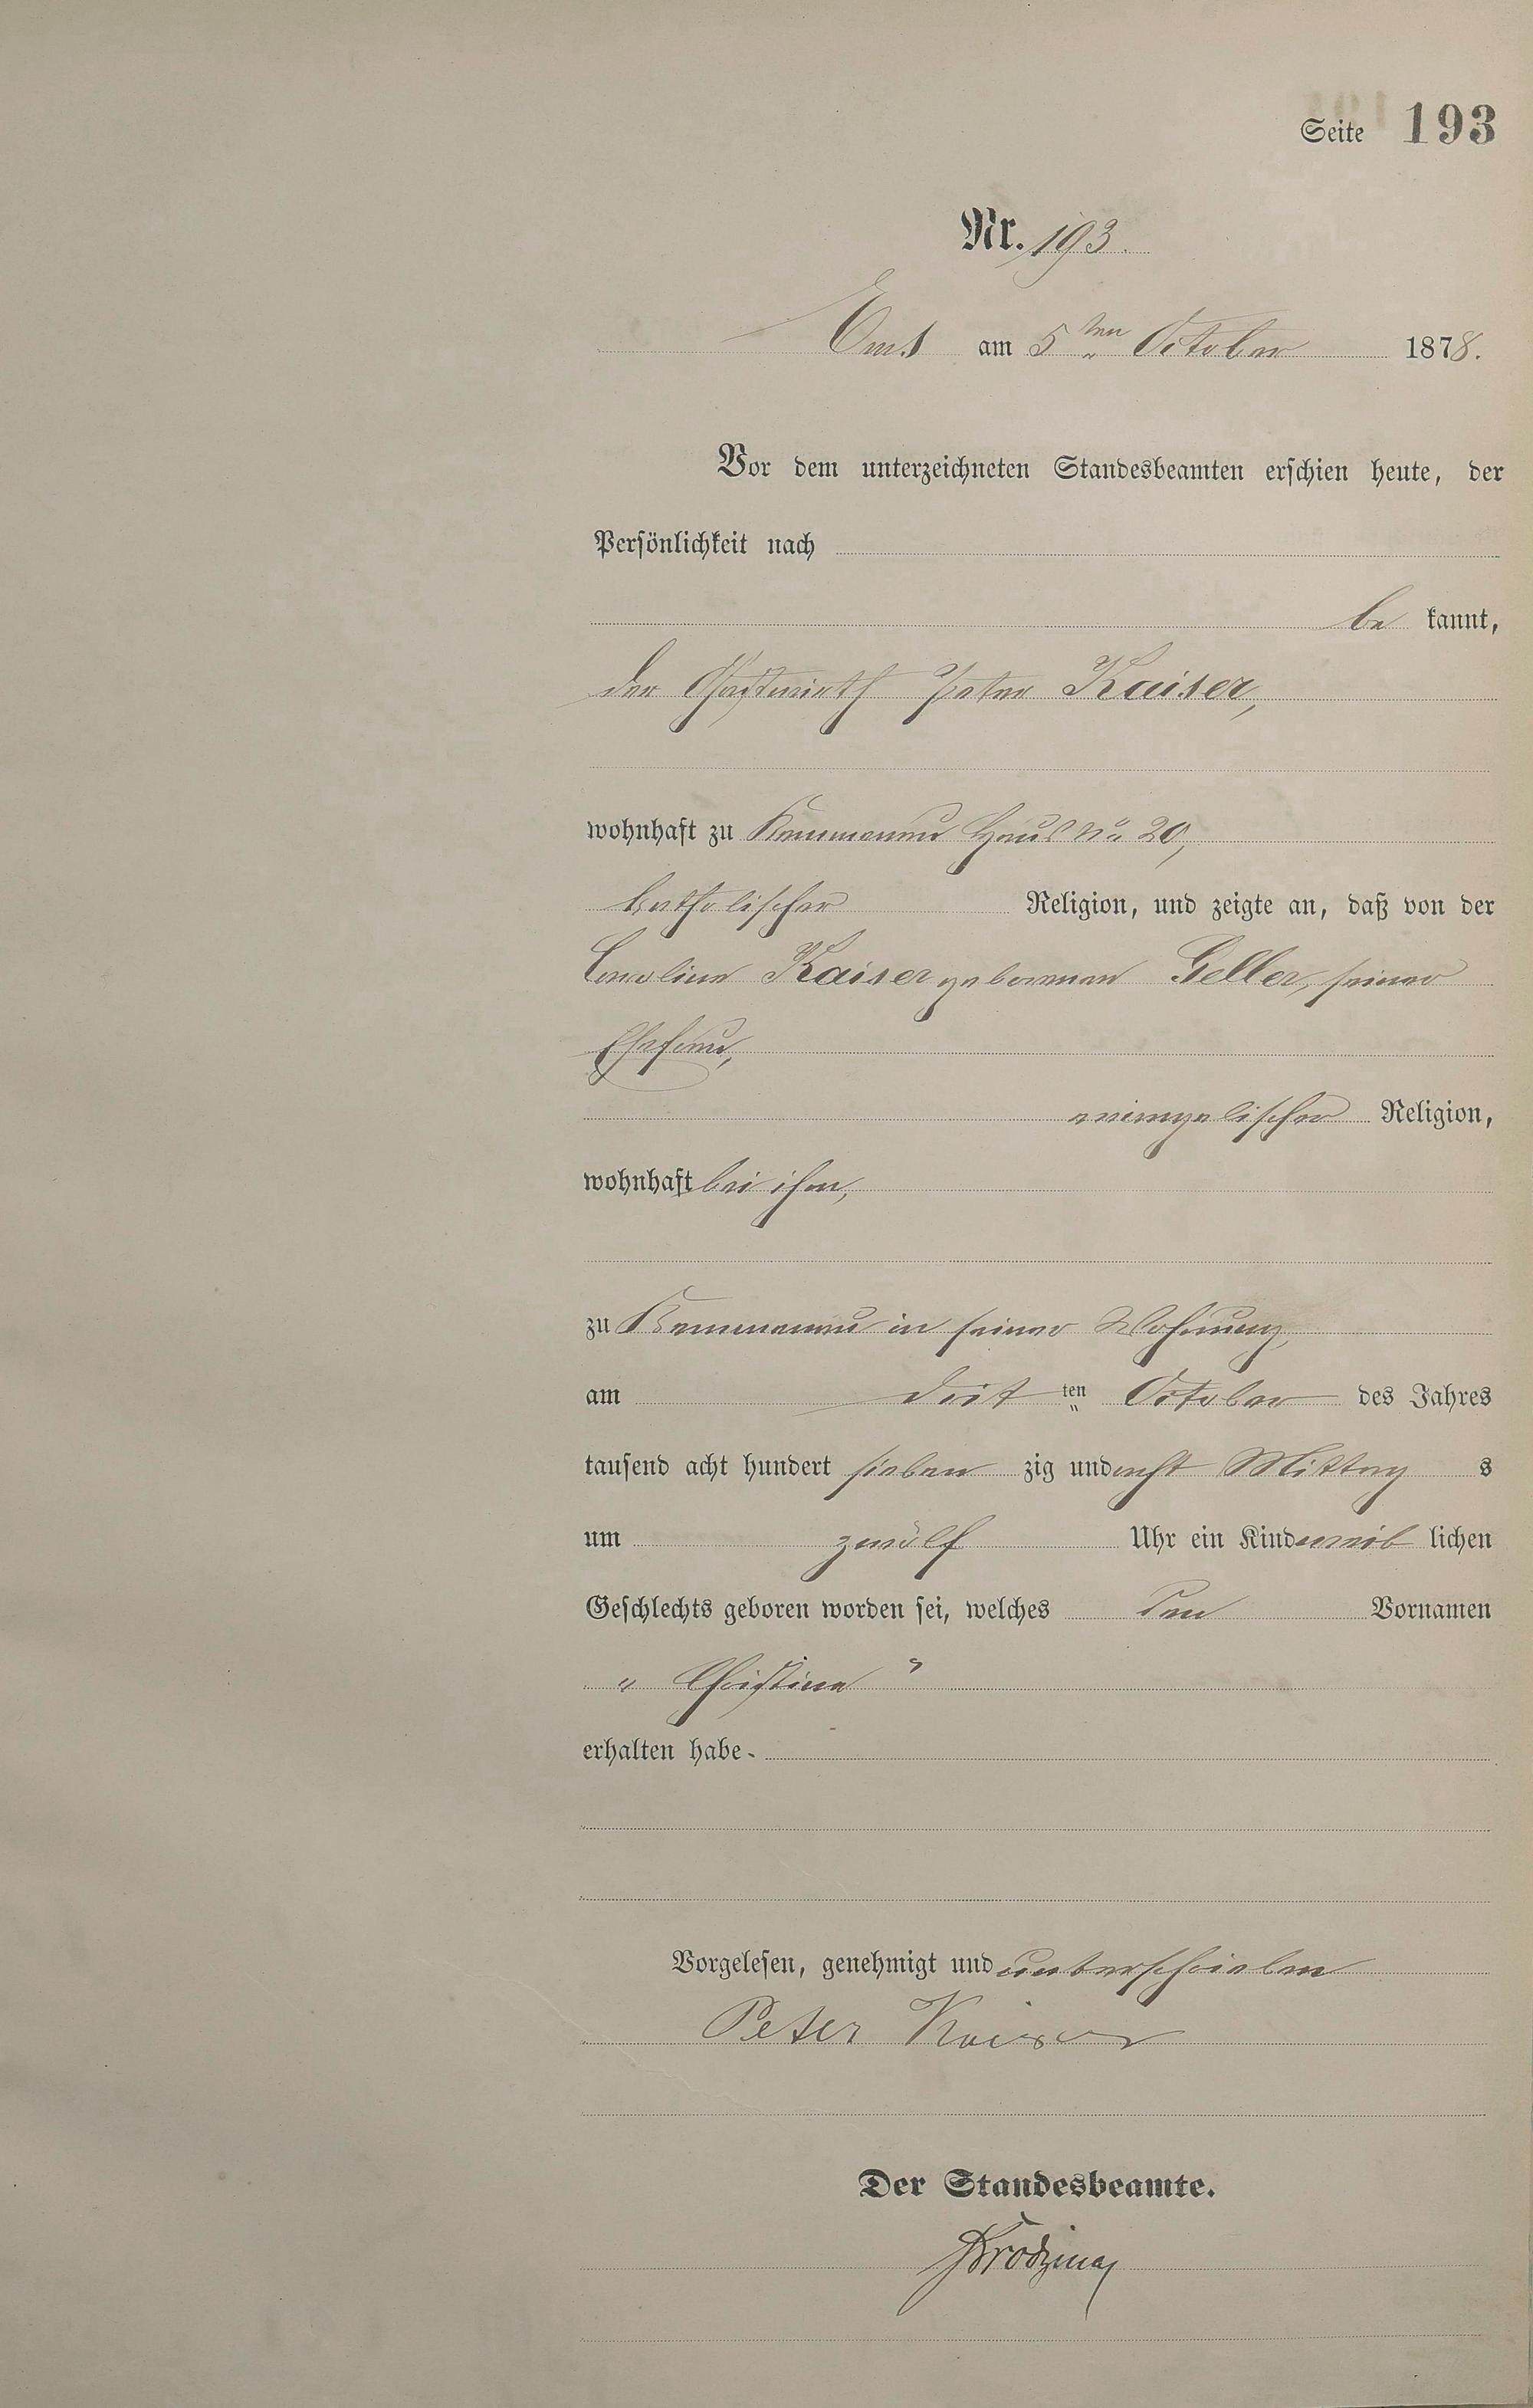 Seite 193
Nr. 193.
Ems am 5ten October 1878.
Vor dem unterzeichneten Standesbeamten erschien heute, der
Persönlichkeit nach
be kannt,
der Gastwirth Peter Kaiser,
wohnhaft zu Kemmenau Haus No 20,
katholischer Religion, und zeigte an, daß von der
Caroline Kaiser geborenen Geller, seiner
Ehefrau,
evangelischer Religion,
wohnhaft bei ihm,
zu Kemmenau in seiner Wohnung,
am drit ten October des Jahres
tausend acht hundert sieben zig und acht Mittag s
um zwölf Uhr ein Kind weib lichen
Geschlechts geboren worden sei, welches den Vornamen
" Christine "
erhalten habe.
Vorgelesen, genehmigt und unterschrieben
Peter Kaiser
Der Standesbeamte.